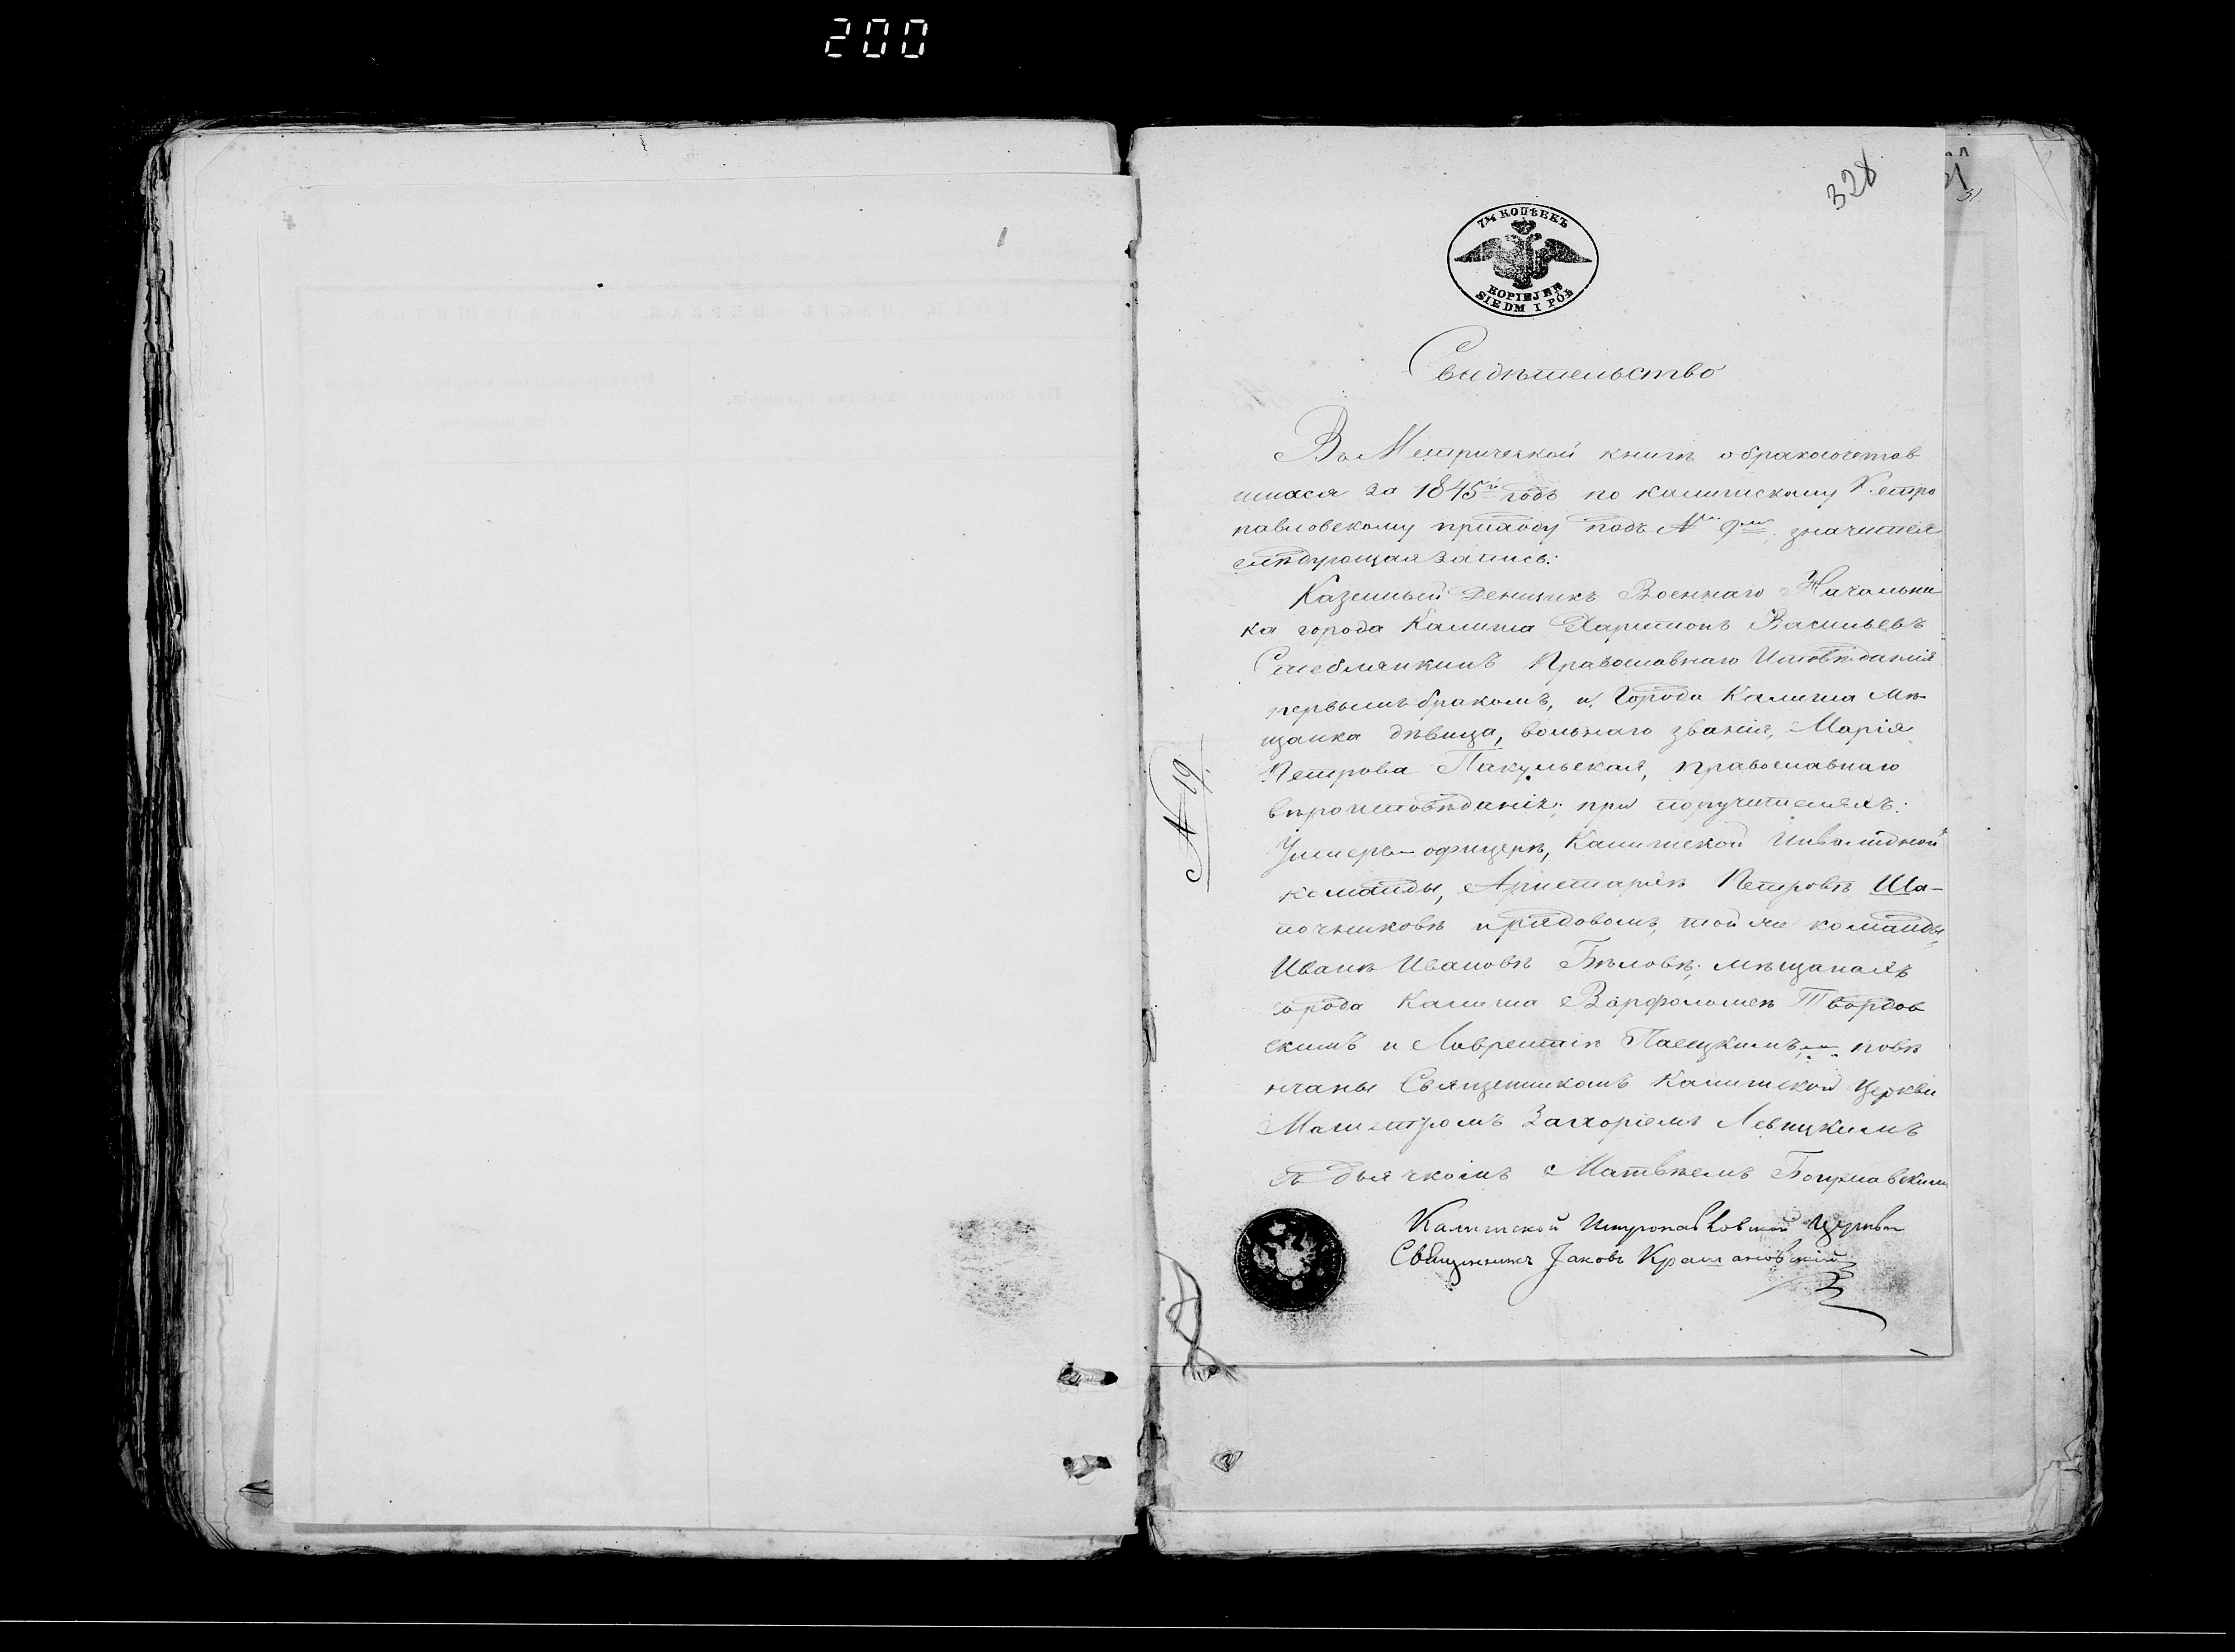 200
328
7½ КОПѢЕКЪ
KOPIEJEK
SIEDM I PÓŁ
Свидѣтельство
Въ Метрической книгѣ о бракосочетав
шихся за 1845й годъ по калишскому Петро
павловскому приходу подъ №
значится
слѣдующая запись:
Казенный Денщикъ Военнаго Начальни
ка города Калиша Харитонъ Васильевъ
Православнаго Исповѣданія
первымъ бракомъ, и Города Калиша Мѣ
щанка дѣвица, вольнаго званія, Марія
Петрова Пакульская, православнаго
вѣроисповѣданія; при поручителяхъ:
Унтеръ-офицерѣ, Калишской Инвалидной
команды, Аристархѣ Петровѣ Ша-
почниковѣ и рядовомъ, той же команды,
Иванѣ Ивановѣ Бѣловѣ; мѣщанахъ
города Калиша Варфоломеѣ Твордов
скимъ и Лаврентіѣ повѣ
нчаны Священникомъ Калишской Церкви
Магистромъ Захаріемъ Левицкимъ
съ дьячкомъ Матвѣемъ
№ 19.
Калишской Петропавловской Церкви
Священникъ Іаковъ